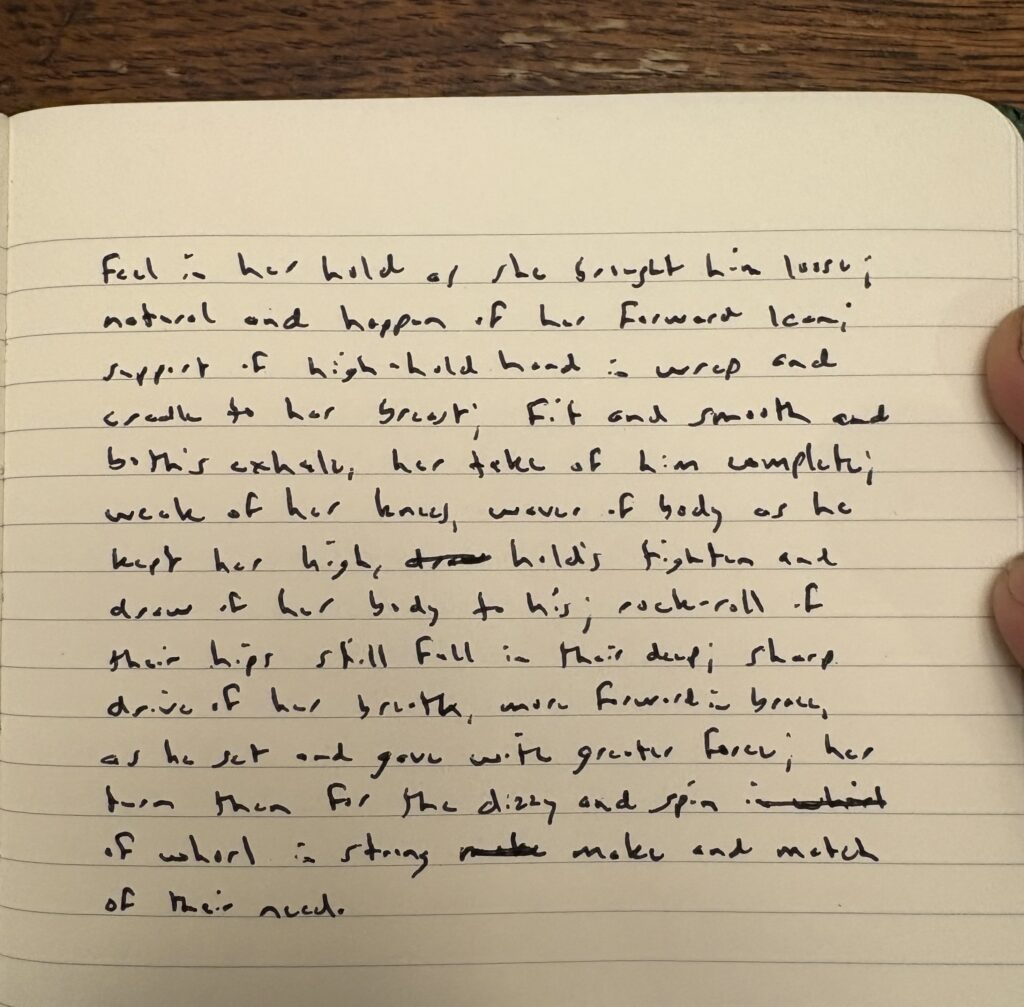 Feel in her hold as she brought him loose;
natural and happen of her forward lean;
support of high-hold hand in wrap and
cradle to her breast; fit and smooth and
both's exhale, her take of him complete;
weak of her knees, waver of body as he
kept her high, draw hold's tighten and
draw of her body to his; rock-roll of
their hips still full in their deep; sharp
drive of her breath, more forward in brace,
as he set and gave with greater force; her
turn them for the dizzy and spin in whirl
of whorl in strong make make and match
of their need.